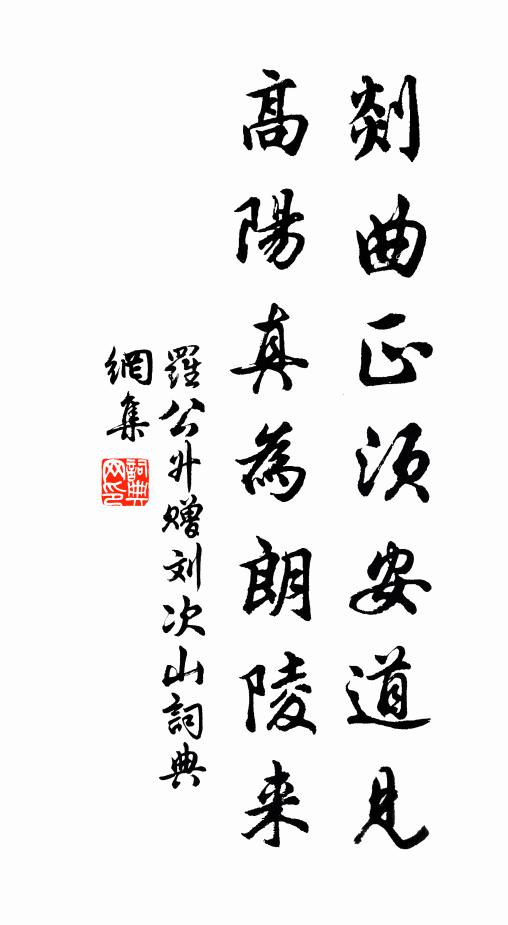 剡曲正须安道見
高陽真為朗陵来
羅公升赠刘次山詞典
網集
詞典網印